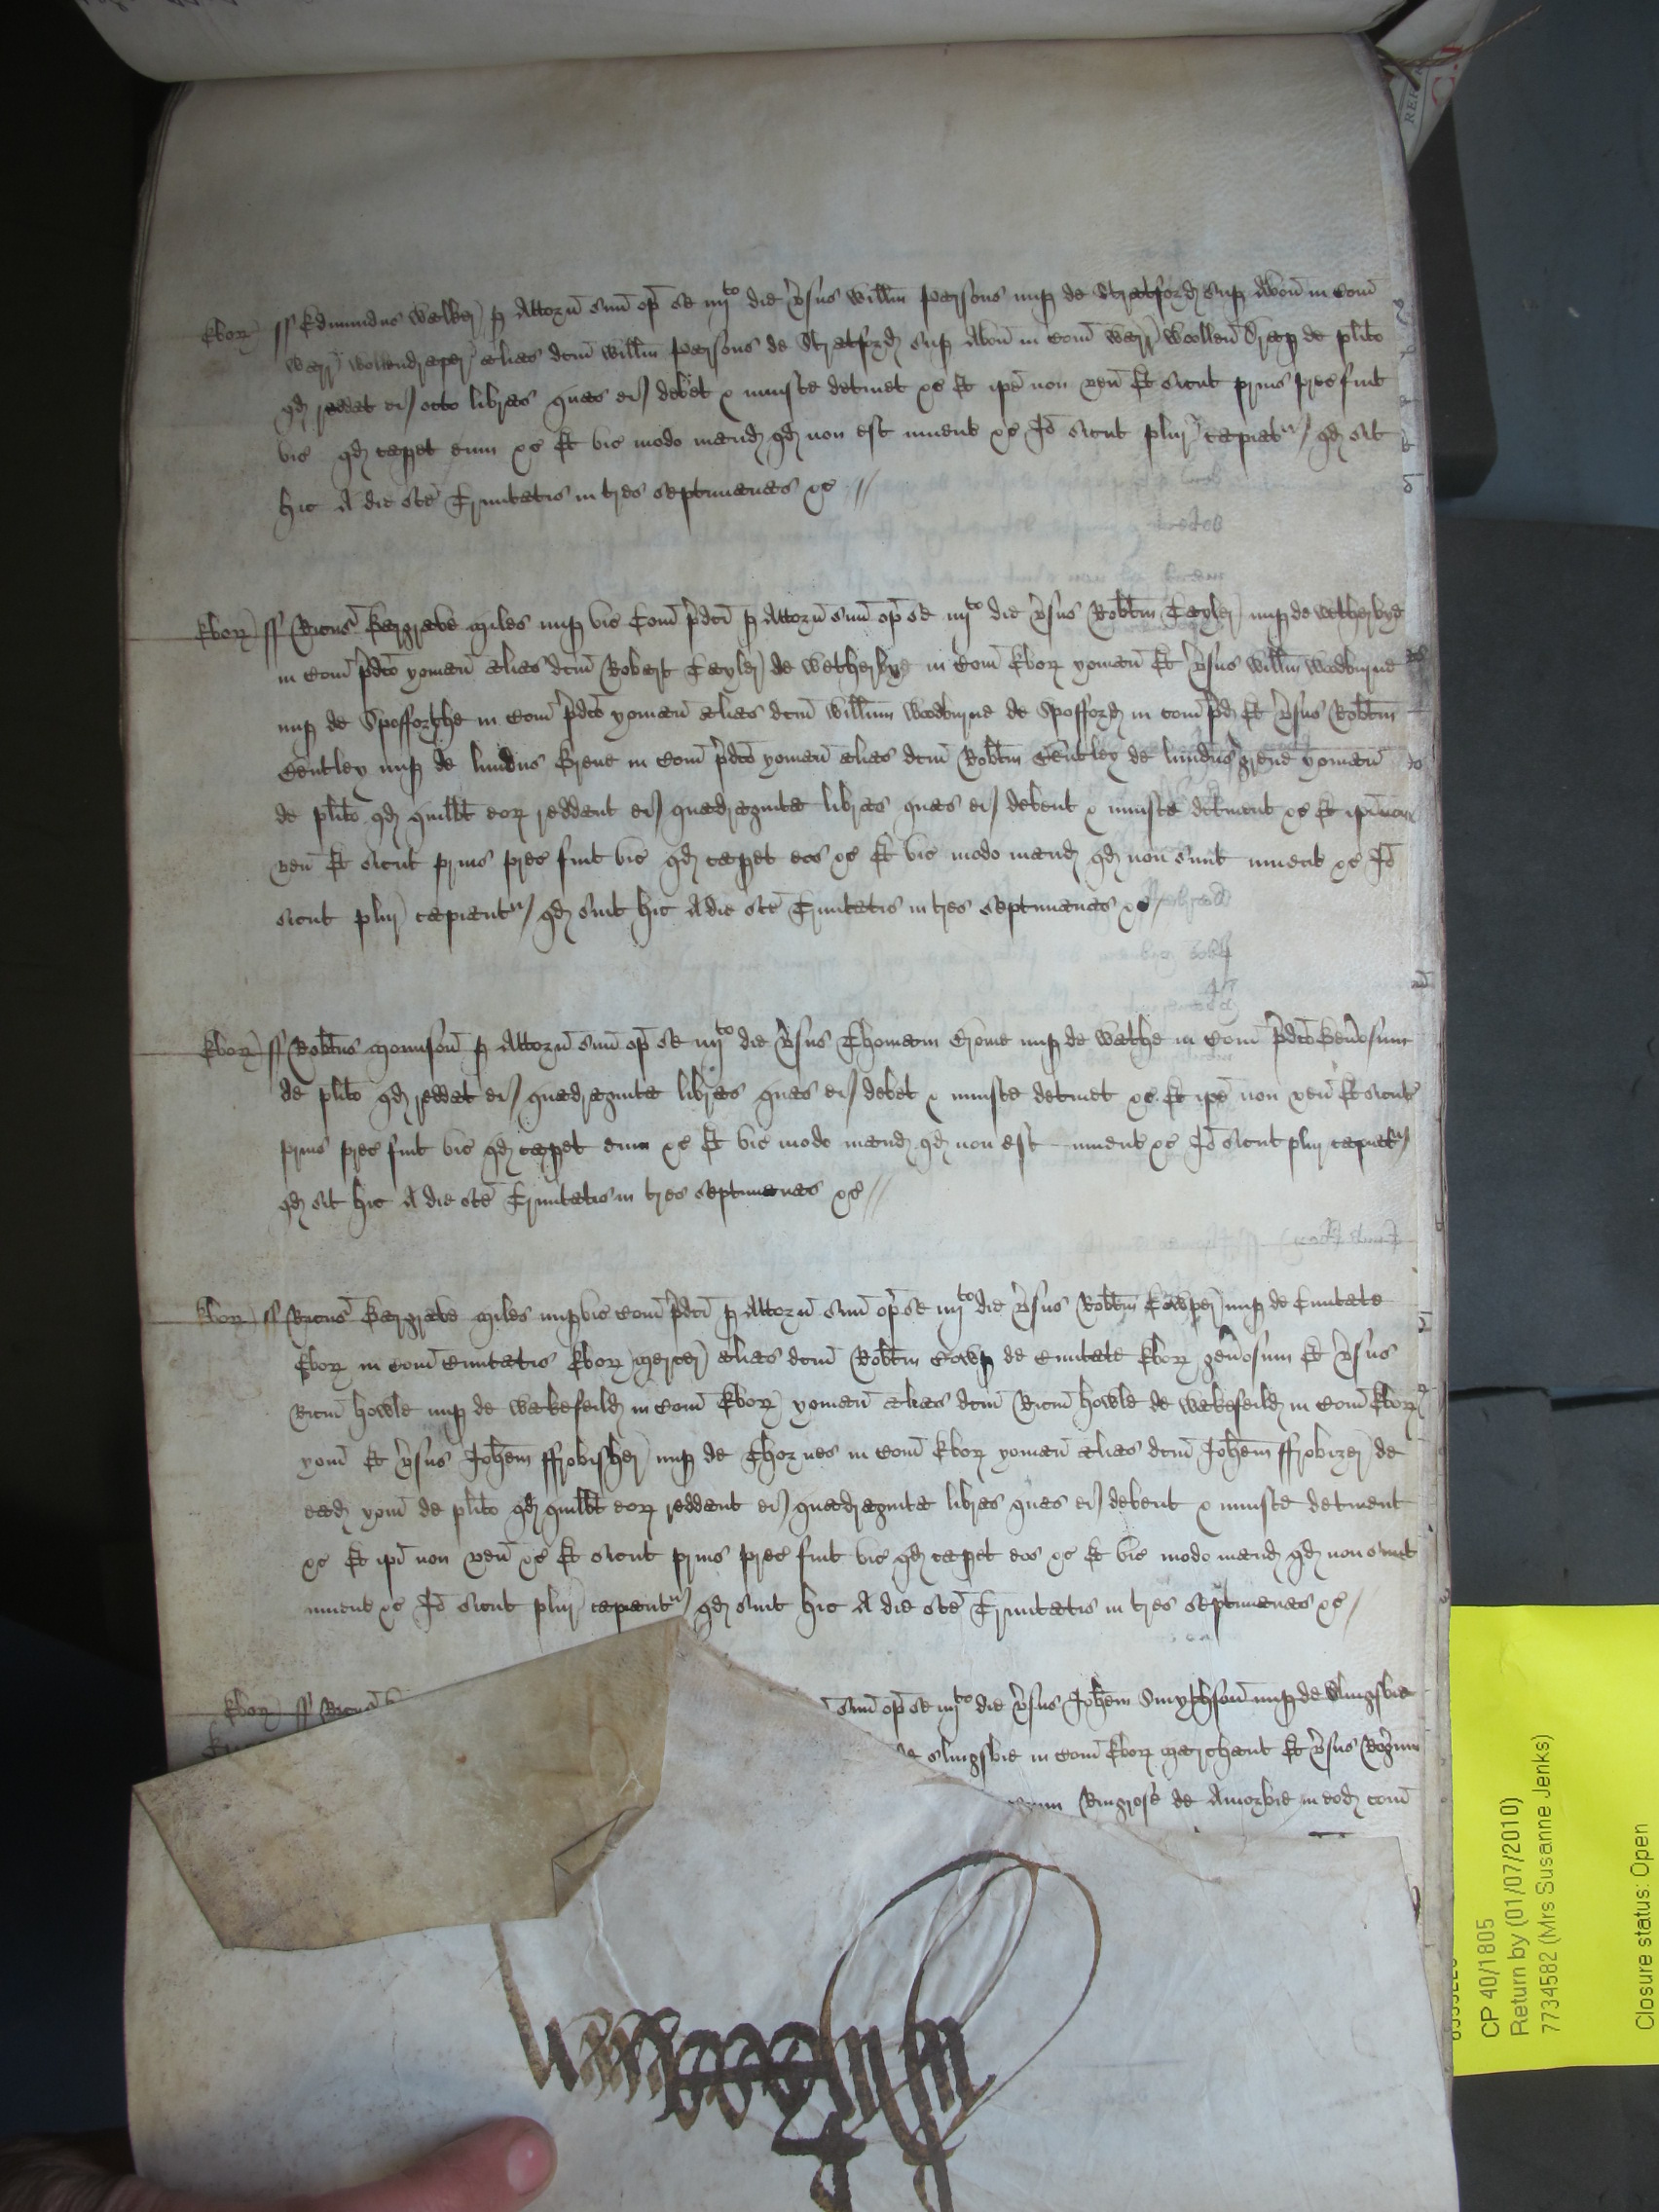 Ebor ss Edmundus Walker p Attorn suu op se iiijto die vsus Willm Parsons nup de Stratford sup Avon in Com
Warr wollendraper alias dcm Willm Parsons de Stratford sup Avon in Com Warr Woollen Drap de plito
qd reddat ei octo libras quas ei debet & iniuste detinet &c Et ipe non ven Et sicut prius prec fuit
vic qd capet eum &c Et vic modo mand qd non est invent &c Io sicut plur capiatur qd sit
hic A die sce Trinitatis in tres septimanas &c //
Ebor ss Ricus Gargrave miles nup vic Com pdci p Attorn suu op se iiijto die vsus Robtm Tayler nup de Wetherbye
in Com pdco yoman alias dcm Robert Tayler de Wetherbye in Com Ebor yoman Et vsus Willm Woodburne
nup de Spofforthe in Com pdco yoman alias dcm Willmm Woodburne de Spofford in com pd Et vsus Robtm
nup de Grene in Com pdco yoman alias dcm Robtm de grene yoman
de plito qd quilbt eor reddant ei quadraginta libras quas ei debent & iniuste detinent &c Et ipi non
ven Et sicut prius prec fuit vic qd capet eos &c Et vic modo mand qd non sunt invent &c Io
sicut plur capiantur qd sint hic A die sce Trinitatis in tres septimanas &c
Ebor ss Robtus Monnson p Attorn suu op se iiijto die vsus Thomam Crome nup de Wathe in Com pdco Genosum
de plito qd reddat ei quadraginta libras quas ei debet & iniuste detinet &c Et ipe non ven Et sicut
prius prec fuit vic qd capet eum &c Et vic modo mand qd non est invent &c Io sicut plur capiatur
qd sit hic A die sce Trinitatis in tres septimanas &c //
Ebor ss Ricus Gargrave miles nup vic com pdci p Attorn suu op se iiijto die vsus Robtm Cowper nup de Civitate
Ebor in com Civitatis Ebor mercer alias dcm Robtm Cowp de Civitate Ebor genosum Et vsus
Ricm Howle nup de Wakefeild in Com Ebor yoman alias dcm Ricm Howle de Wakefeild in Com Ebor
yom Et vsus Johem ffrobisher nup de Thornes in com Ebor yoman alias dcm Johem ffrobizer de
ead yom de plito qd quilbt eor reddant ei quadraginta libras quas ei debent & iniuste detinent
&c Et ipi non ven &c Et sicut prius prec fuit vic qd capet eos &c Et vic modo mand qd non sunt
invent &c Io sicut plur capiantur qd sint hic A die sce Trinitatis in tres septimanas &c
Ebor ss Ricus suu op se iiijto die vsus Johem Smythson nup de Slingsbie
de Slingsbie in com Ebor marchant Et vsus
Ringrose de Amorbie in eod com
CP 40/1805
Return by (01/07/2010)
7734582 (Mrs Susanne Jenks)
Closure status: Open